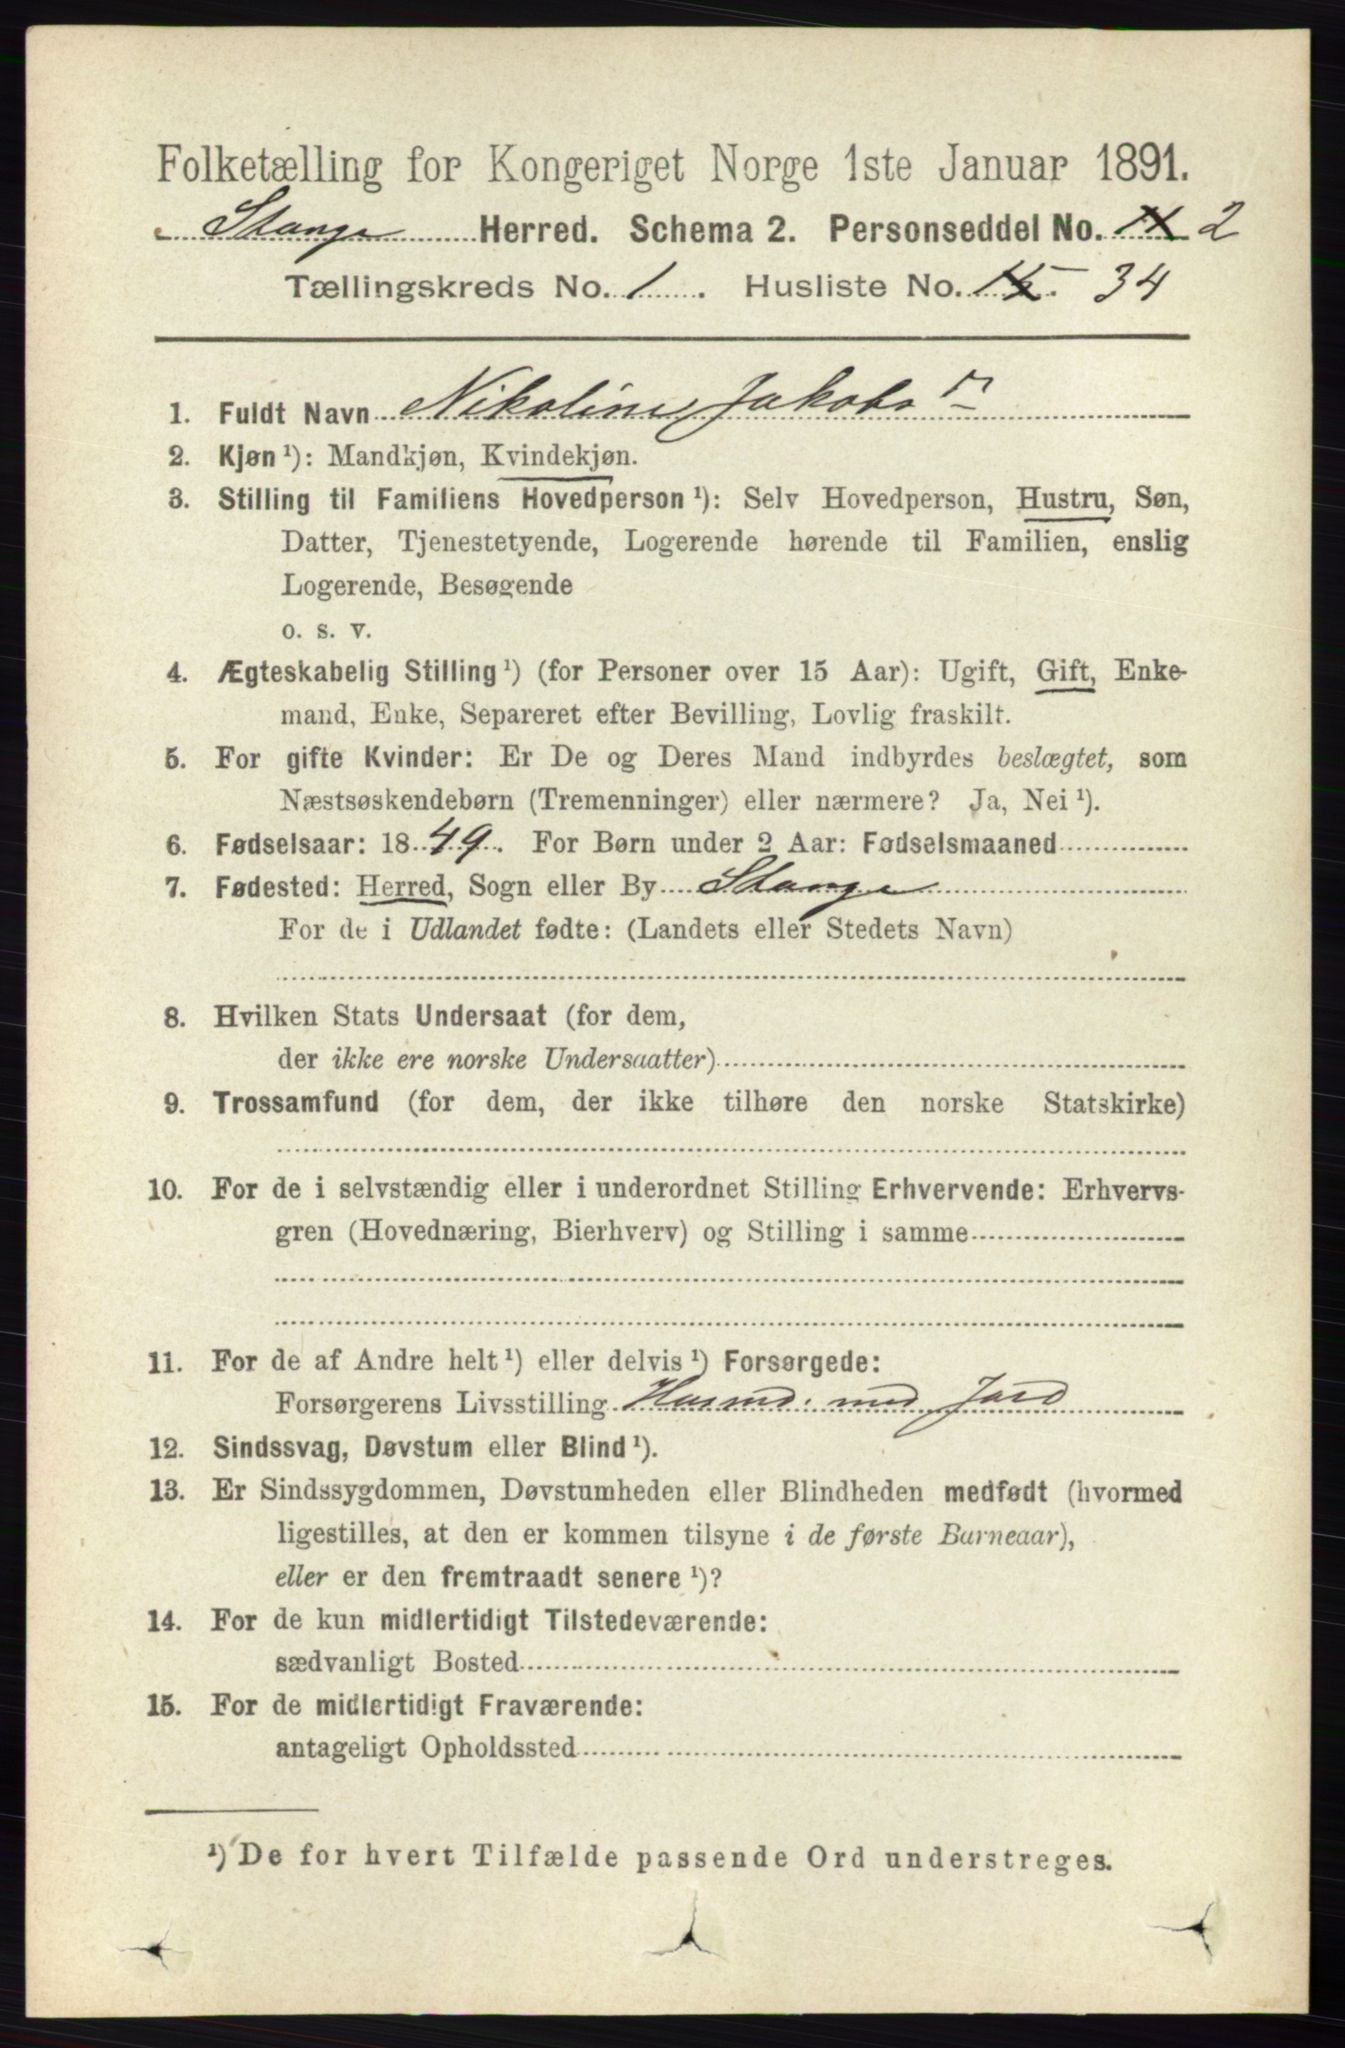 Folketælling for Kongeriget Norge 1ste Januar 1891.
Stange Herred. Schema 2. Personseddel No. 2
Tællingskreds No. 1. Husliste No. 15. 34
1. Fuldt Navn Nikoline Jakobsn
2. Kjøn¹): Mandkjøn, Kvindekjøn.
3. Stilling til Familiens Hovedperson¹): Selv Hovedperson, Hustru, Søn,
Datter, Tjenestetyende, Logerende hørende til Familien, enslig
Logerende, Besøgende
o. s. v.
4. Ægteskabelig Stilling¹) (for Personer over 15 Aar): Ugift, Gift, Enke-
mand, Enke, Separeret efter Bevilling, Lovlig fraskilt.
5. For gifte Kvinder: Er De og Deres Mand indbyrdes beslægtet, som
Næstsøskendebørn (Tremenninger) eller nærmere? Ja, Nei¹).
6. Fødselsaar: 1849. For Børn under 2 Aar: Fødselsmaaned
7. Fødested: Herred, Sogn eller By Stange
For de i Udlandet fødte: (Landets eller Stedets Navn)
8. Hvilken Stats Undersaat (for dem,
der ikke ere norske Undersaatter)
9. Trossamfund (for dem, der ikke tilhøre den norske Statskirke)
10. For de i selvstændig eller i underordnet Stilling Erhvervende: Erhvervs-
gren (Hovednæring, Bierhverv) og Stilling i samme
11. For de af Andre helt¹) eller delvis¹) Forsørgede:
Forsørgerens Livsstilling Husmd. med Jord
12. Sindssvag, Døvstum eller Blind¹).
13. Er Sindssygdommen, Døvstumheden eller Blindheden medfødt (hvormed
ligestilles, at den er kommen tilsyne i de første Barneaar),
eller er den fremtraadt senere¹)?
14. For de kun midlertidigt Tilstedeværende:
sædvanligt Bosted
15. For de midlertidigt Fraværende:
antageligt Opholdssted
¹) De for hvert Tilfælde passende Ord understreges.